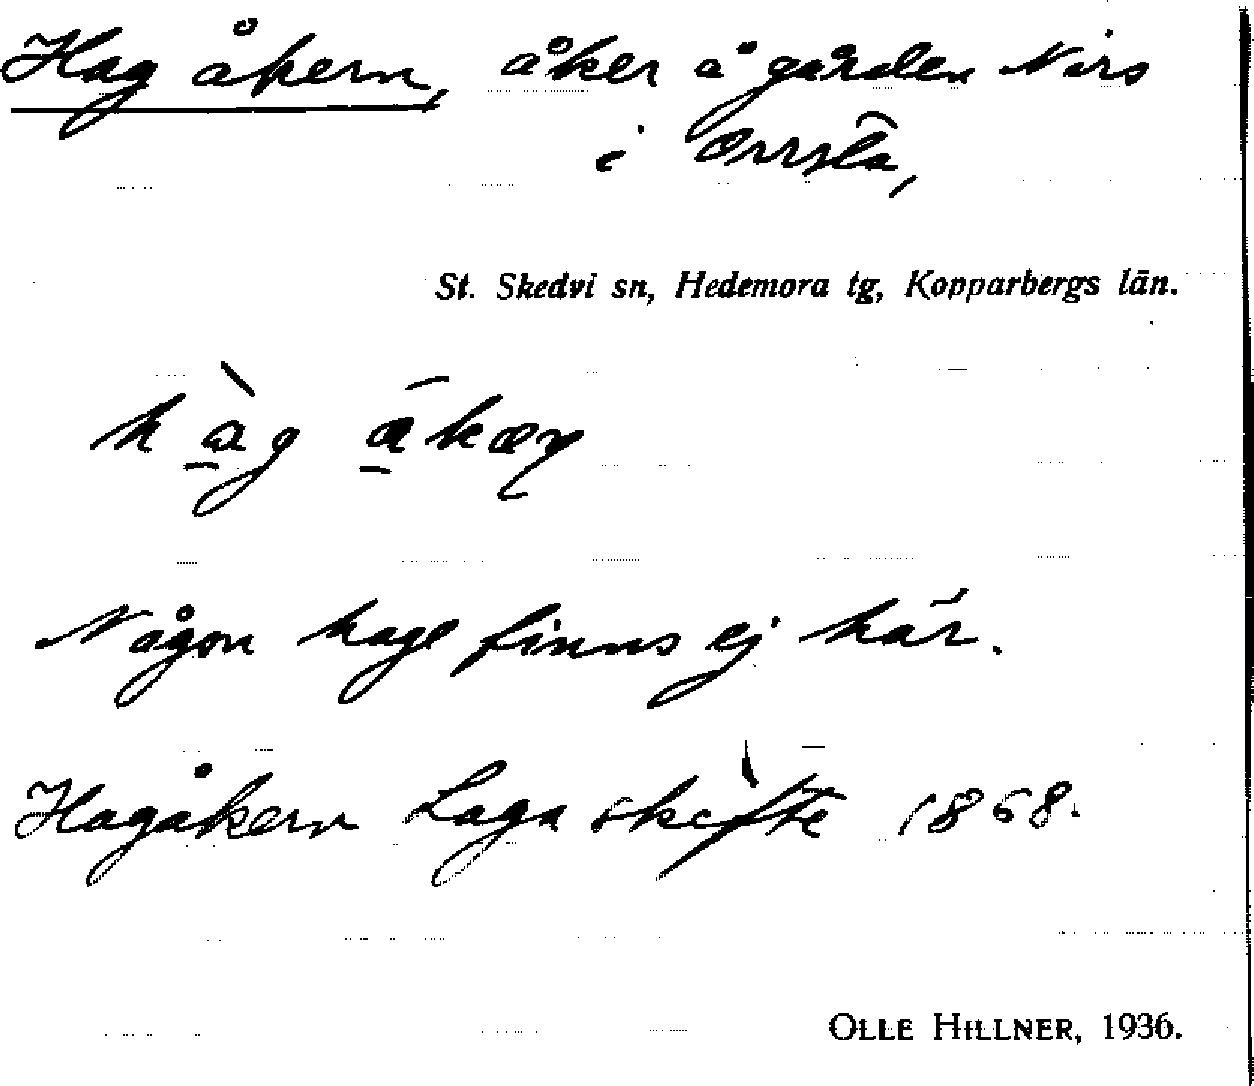 Hagåkern, åker å gården Nirs
i Orrsta,
St. Skedvi sn, Hedemora tg, Kopparbergs län.
Någon hage finns ej här.
Hagåkern Laga skifte 1868.
OLLE HILLNER, 1936.